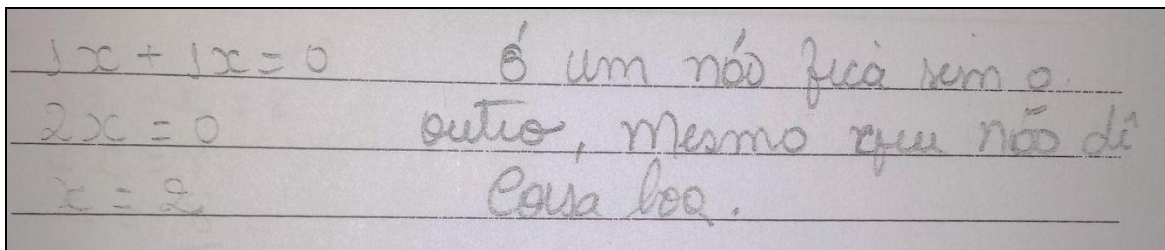 1x + 1x = 0 é um não fica sem o
2x = 0 outro, mesmo que não dê
x = 2 Coisa boa.